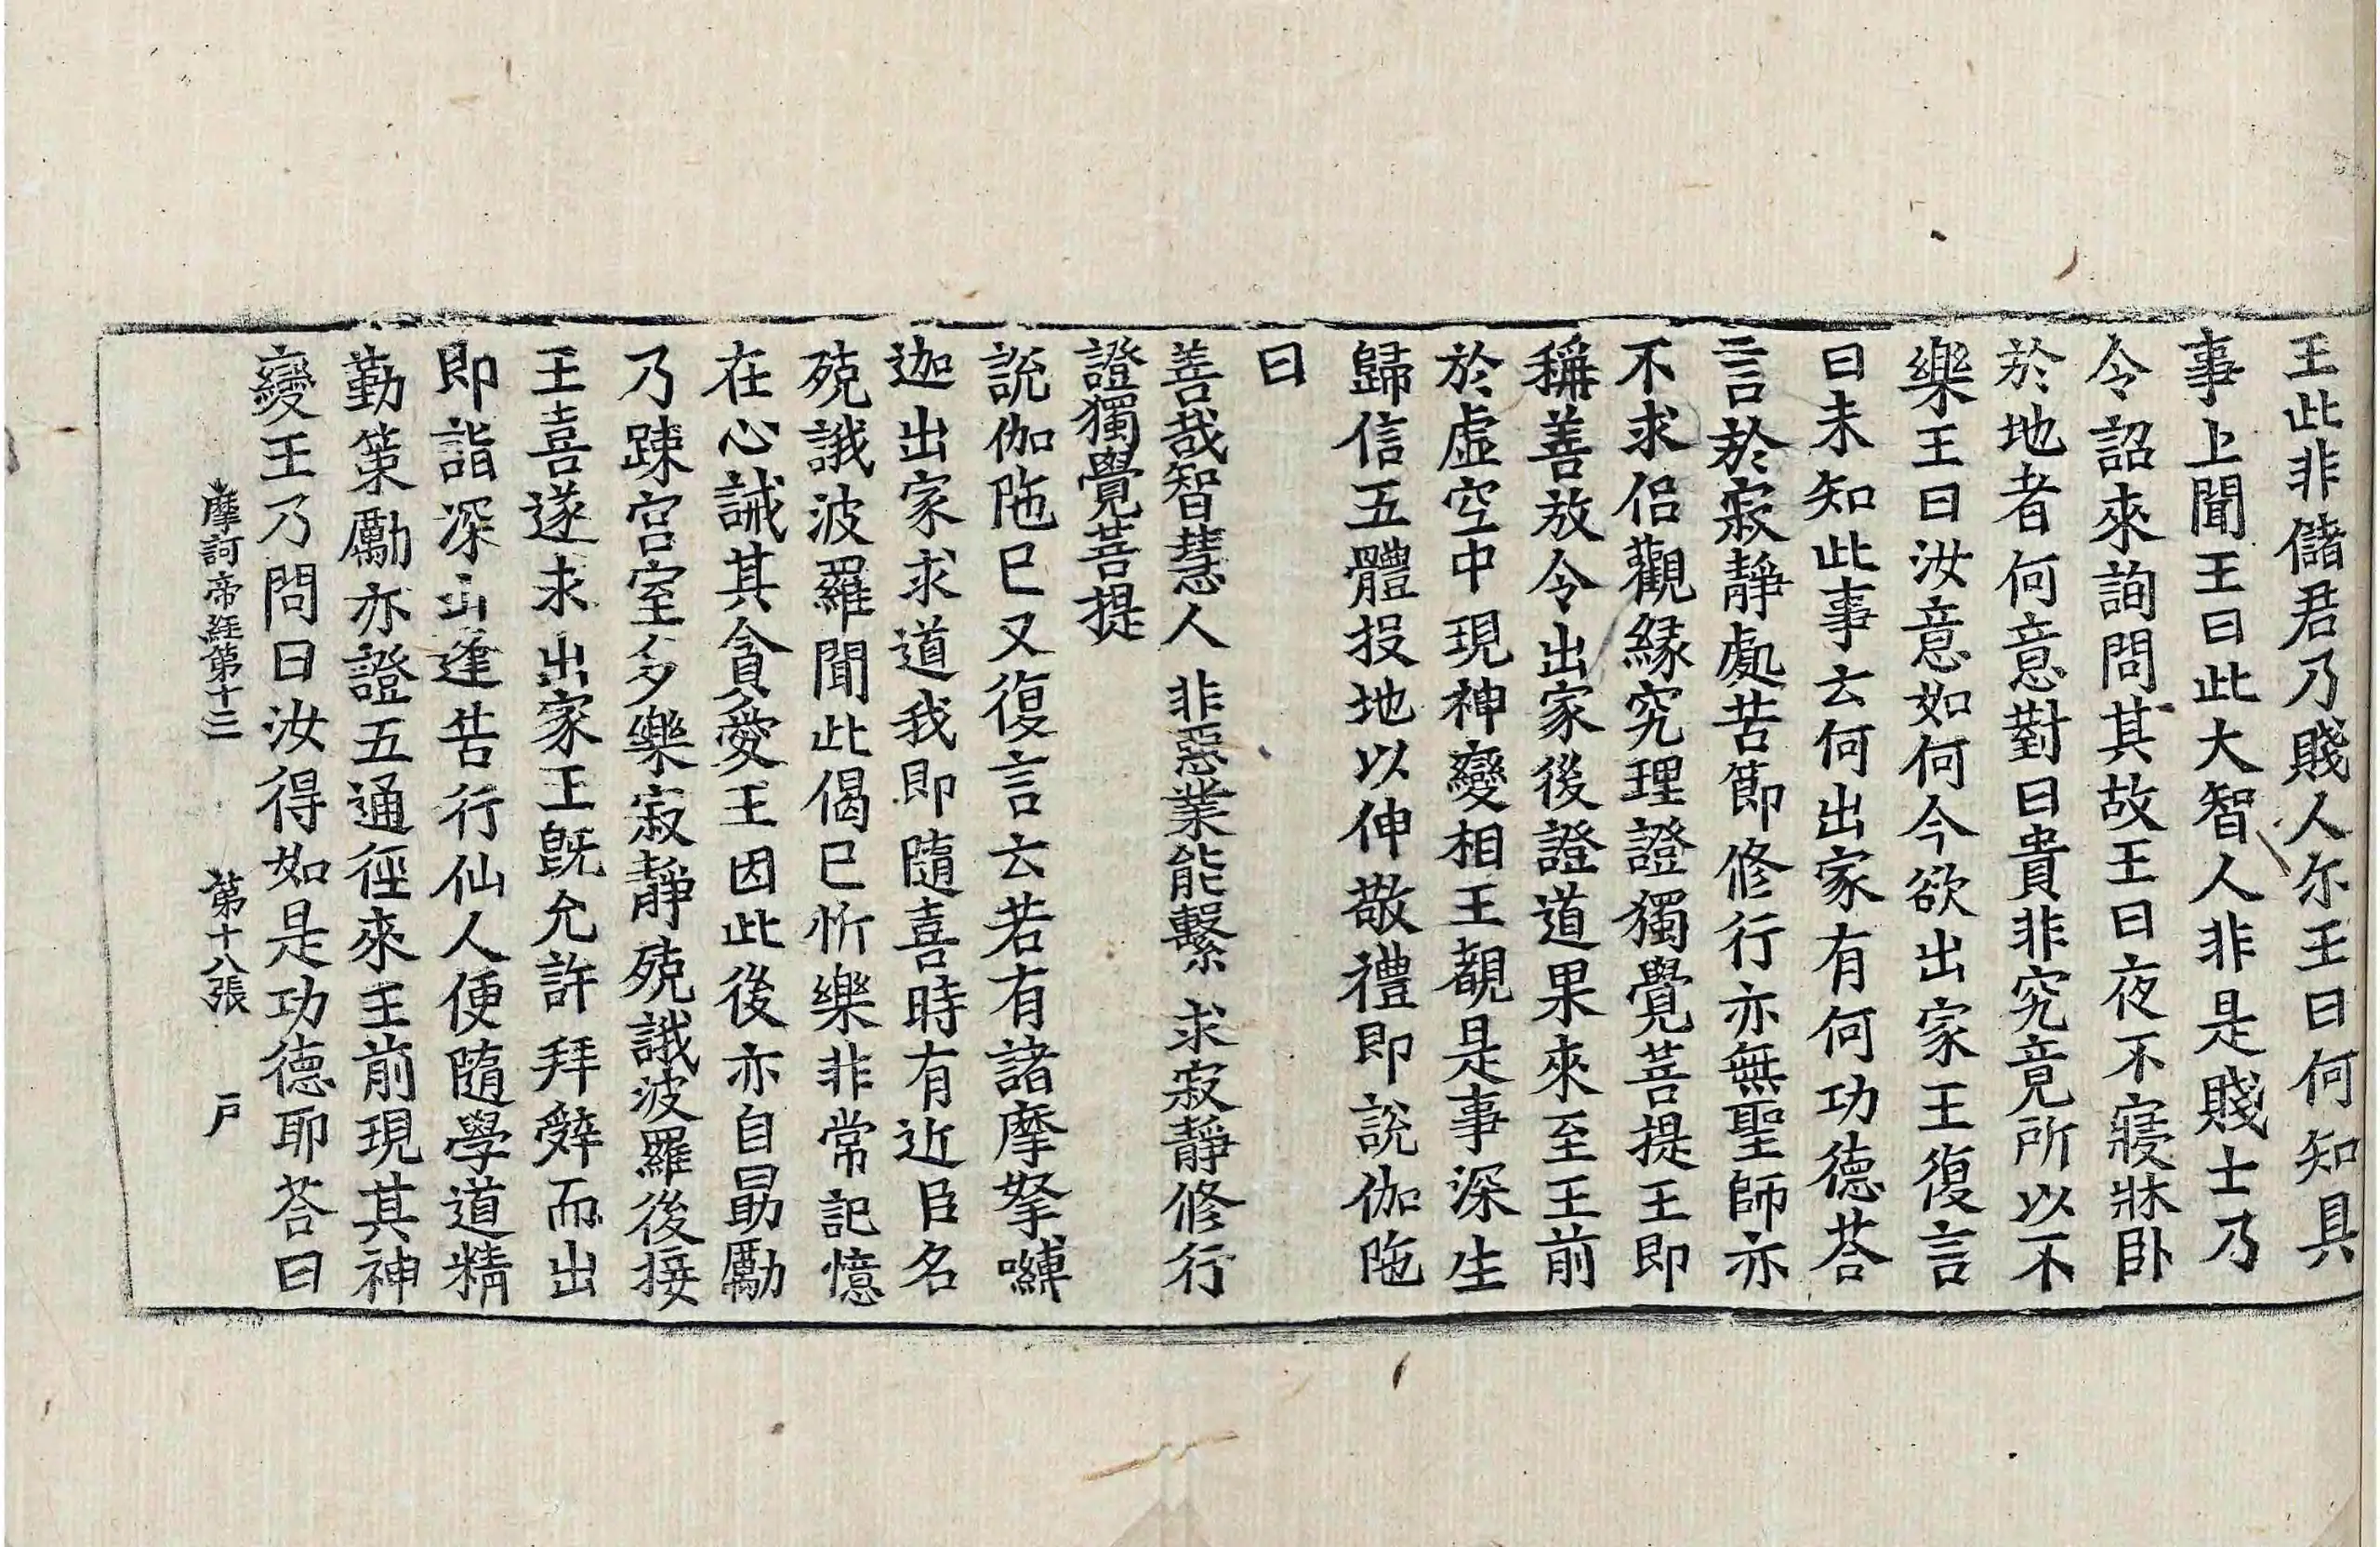 王此非儲君乃賤人尔王曰何知具
事上聞王曰此大智人非是賤士乃
令詔來詢問其故王曰夜不寢牀卧
於地者何意對曰貴非究竟所以不
樂王曰汝意如何今欲出家王復言
曰未知此事云何出家有何功德荅
言於寂靜處苦節修行亦無聖師亦
不求侣觀緣究理證獨覺菩提王即
稱善放令出家後證道果來至王前
於虛空中現神變相王覩是事深生
歸信五體投地以伸敬禮即說伽陁
曰
善哉智慧人 非惡業能繫 求寂靜修行
證獨覺菩提
說伽陁已又復言云若有諸摩拏嚩
迦出家求道我即隨喜時有近臣名
殑誐波羅聞此偈已忻樂非常記憶
在心誡其貪愛王因此後亦自勗勵
乃踈宮室多樂寂靜殑誐波羅後接
王喜遂求出家王旣允許拜辤而出
即詣深山逢苦行仙人便隨學道精
勤策勵亦證五通徑來王前現其神
變王乃問曰汝得如是功德耶荅曰
摩訶帝經第十三 第十八張 戶